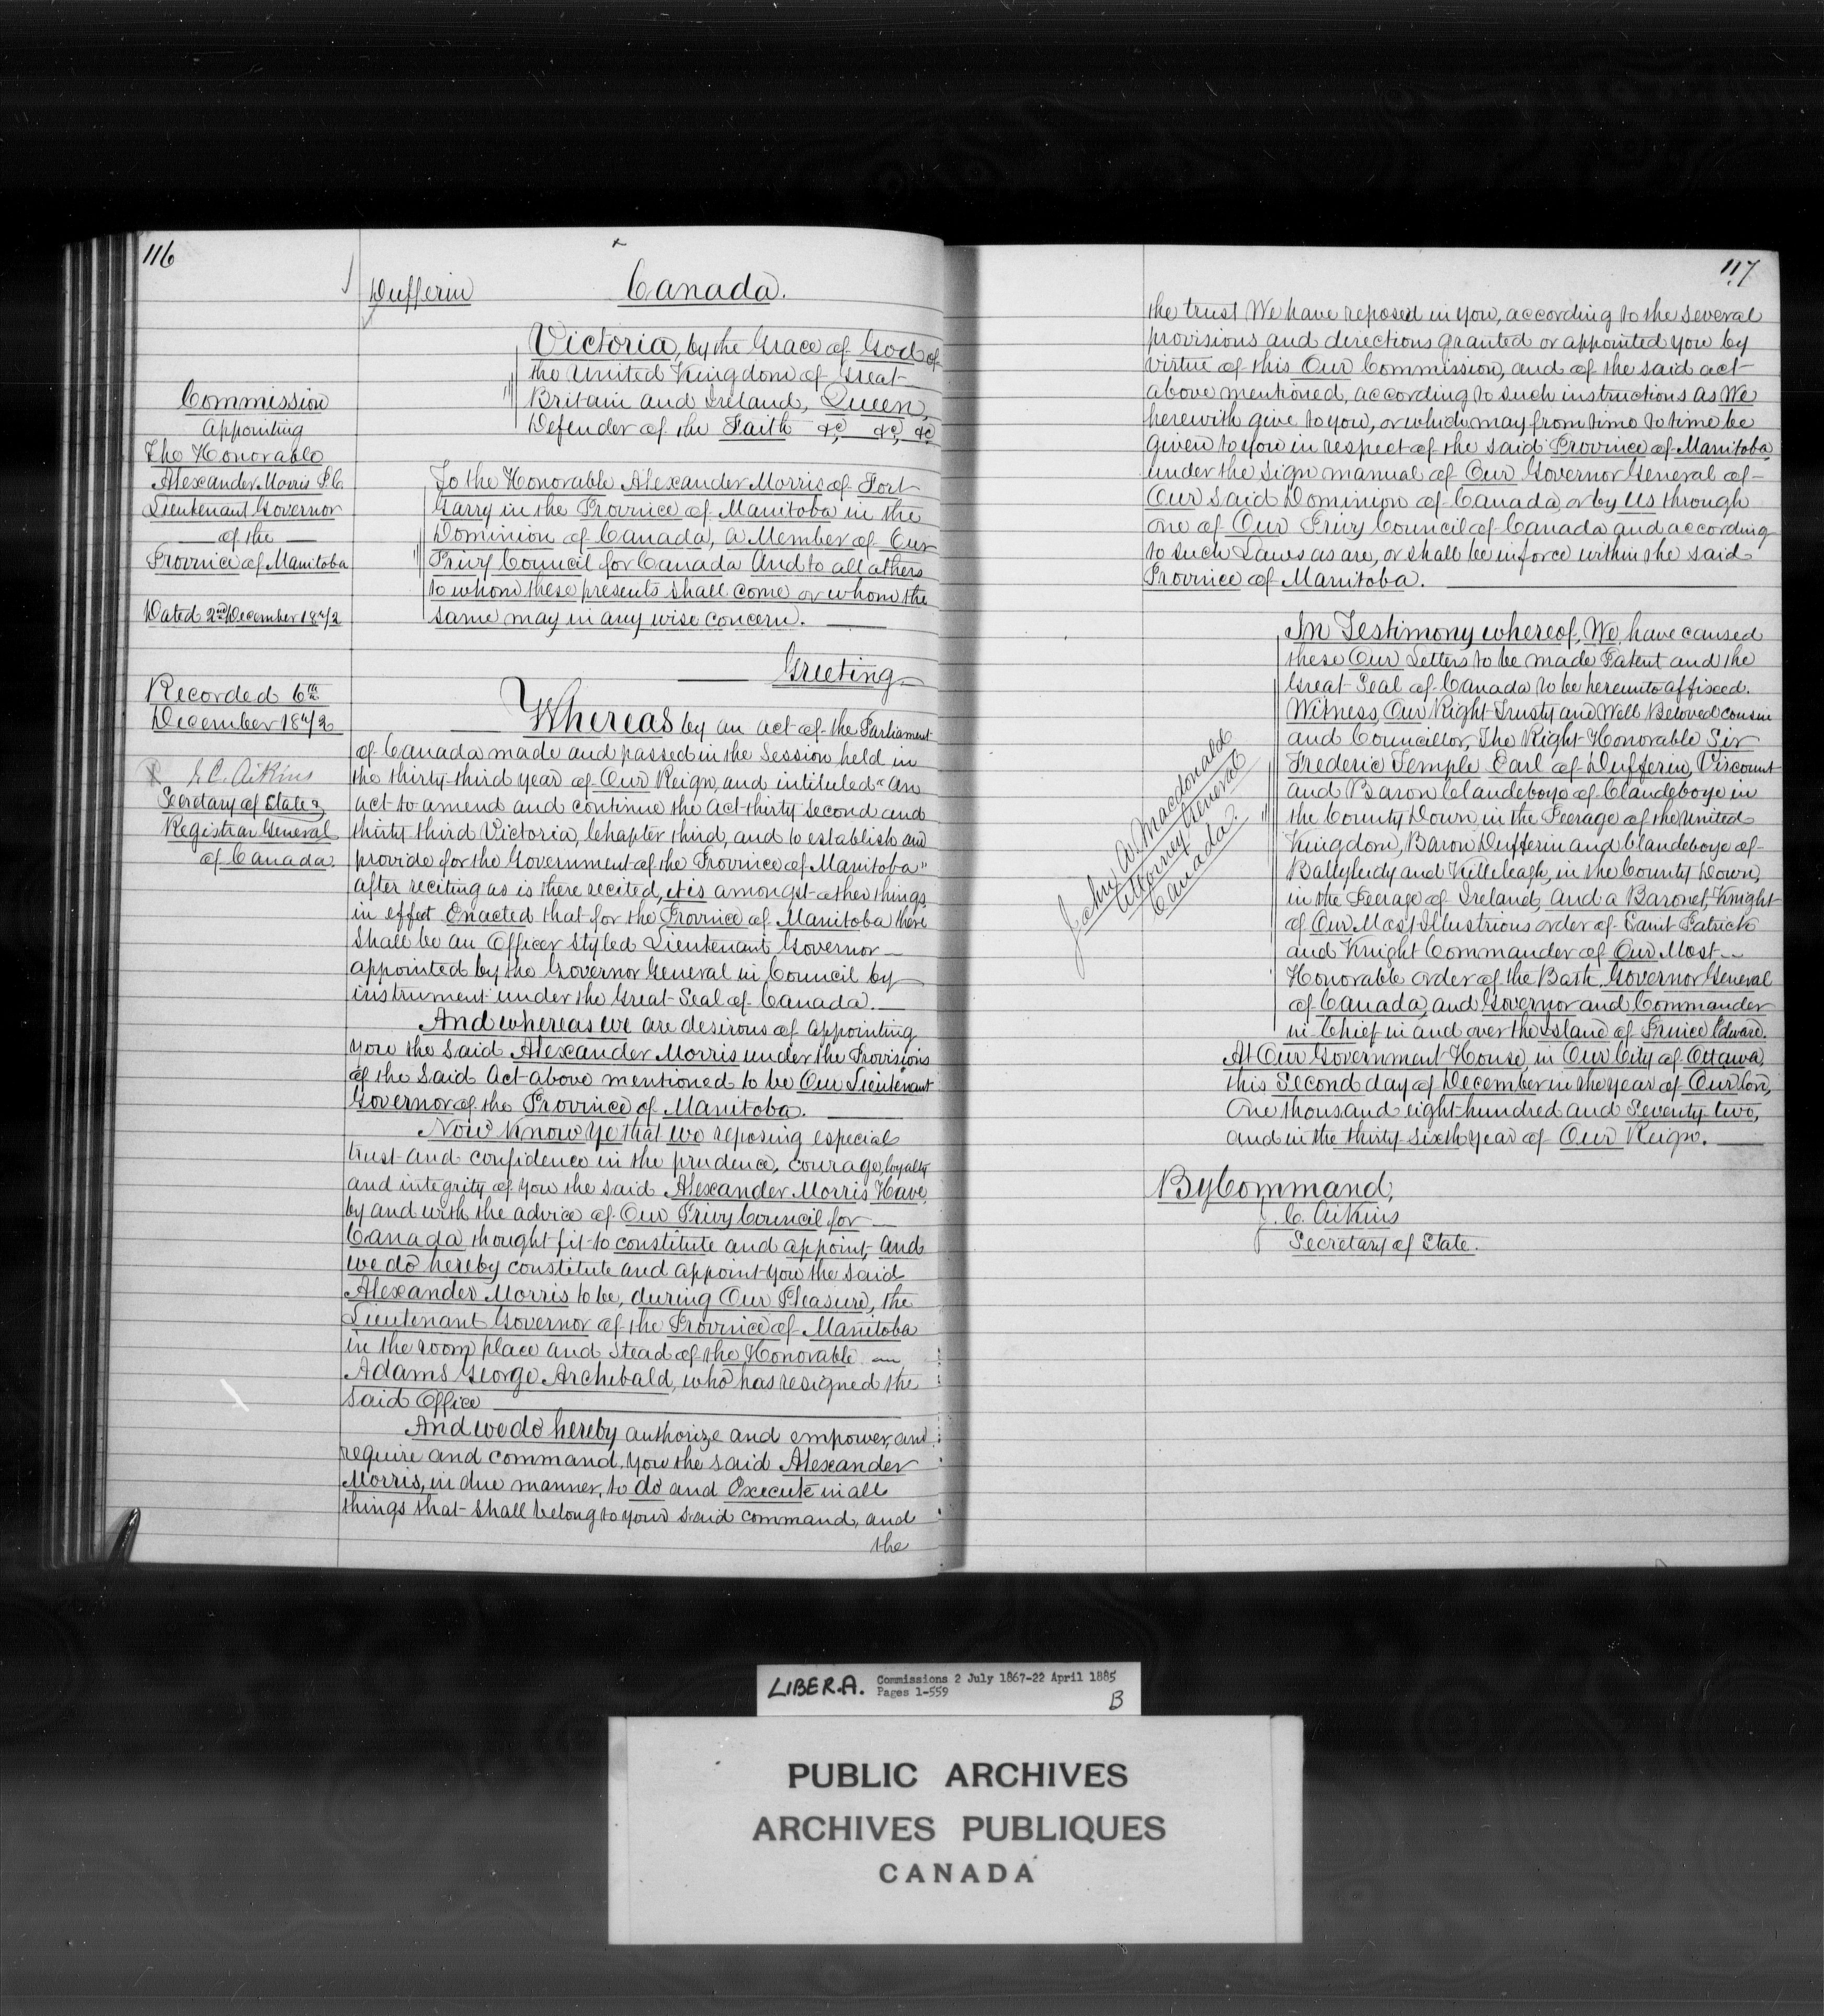 116
Dufferin
Canada.
Victoria, by the Grace of God of
the United Kingdom of Great
Britain and Ireland, Queen,
Defender of the Faith &c, &c, &c
Commission
Appointing
The Honorable
Alexander Morris P.C.
Lieutenant Governor
of the
Province of Manitoba
Dated 2nd December 1872
Recorded 6th
December 1872
J.C. Aikins
Secretary of State &
Registrar General
of Canada.
To the Honorable Alexander Morris of Fort
Garry in the Province of Manitoba in the
Dominion of Canada, a Member of Our
Privy Council for Canada And to all others
to whom these presents shall come or whom the
same may in any wise concern.
Greeting
Whereas by an act of the Parliament
of Canada made and passed in the Session held in
the thirty-third year of Our Reign, and intituled "An
act to amend and continue the Act thirty second and
thirty third Victoria, Chapter third, and to establish and
provide for the Government of the Province of Manitoba"
after reciting as is there recited, it is amongst other things
in effect Enacted that for the Province of Manitoba there
shall be an Officer styled Lieutenant Governor
appointed by the Governor General in Council by
instrument under the Great Seal of Canada.
And whereas we are desirous of appointing
you the said Alexander Morris under the Provisions
of the said Act above mentioned to be Our Lieutenant
Governor of the Province of Manitoba.
Now Know Ye that we reposing especial
trust and confidence in the prudence, courage, loyalty
and integrity of you the said Alexander Morris Have,
by and with the advice of Our Privy Council for
Canada thought fit to constitute and appoint, and
we do hereby constitute and appoint you the said
Alexander Morris to be, during Our Pleasure, the
Lieutenant Governor of the Province of Manitoba
in the room place and stead of the Honorable
Adams George Archibald, who has resigned the
said Office
And we do hereby authorize and empower, and
require and command you the said Alexander
Morris, in due manner, to do and Execute in all
things that shall belong to your said command, and
the
117
the trust We have reposed in you, according to the several
provisions and directions granted or appointed you by
virtue of this Our Commission, and of the said act
above mentioned, according to such instructions as We
herewith give to you, or which may from time to time be
given to you in respect of the said Province of Manitoba
under the sign manual of Our Governor General of
Our said Dominion of Canada, or by Us through
one of Our Privy Council of Canada and according
to such Laws as are, or shall be inforce within the said
Province of Manitoba.
John A. Macdonald
Attorney General
Canada.
In Testimony whereof, We have caused
these Our Letters to be made Patent and the
Great Seal of Canada to be hereunto affixed.
Witness, Our Right Trusty and Well Beloved cousin
and Councillor, The Right Honorable Sir
Frederic Temple Earl of Dufferin, Viscount
and Baron Clandeboye of Clandeboye in
the County Down, in the Peerage of the United
Kingdom, Baron Dufferin and Clandeboye of
Ballyleidy and Killeleagh, in the County Down,
in the Peerage of Ireland, and a Baronet, Knight
of Our Most Illustrious order of Saint Patrick
and Knight Commander of Our Most
Honorable order of the Bath, Governor General
of Canada, and Governor and Commander
in Chief in and over the Island of Prince Edward.
At Our Government House, in Our City of Ottawa,
this Second day of December in the year of Our Lord,
One thousand eight hundred and Seventy two,
and in the thirty sixth year of Our Reign.
By Command,
J. C. Aikins
Secretary of State.
LIBER.A. Commissions 2 July 1867-22 April 1885
Pages 1-559
B
PUBLIC ARCHIVES
ARCHIVES PUBLIQUES
CANADA